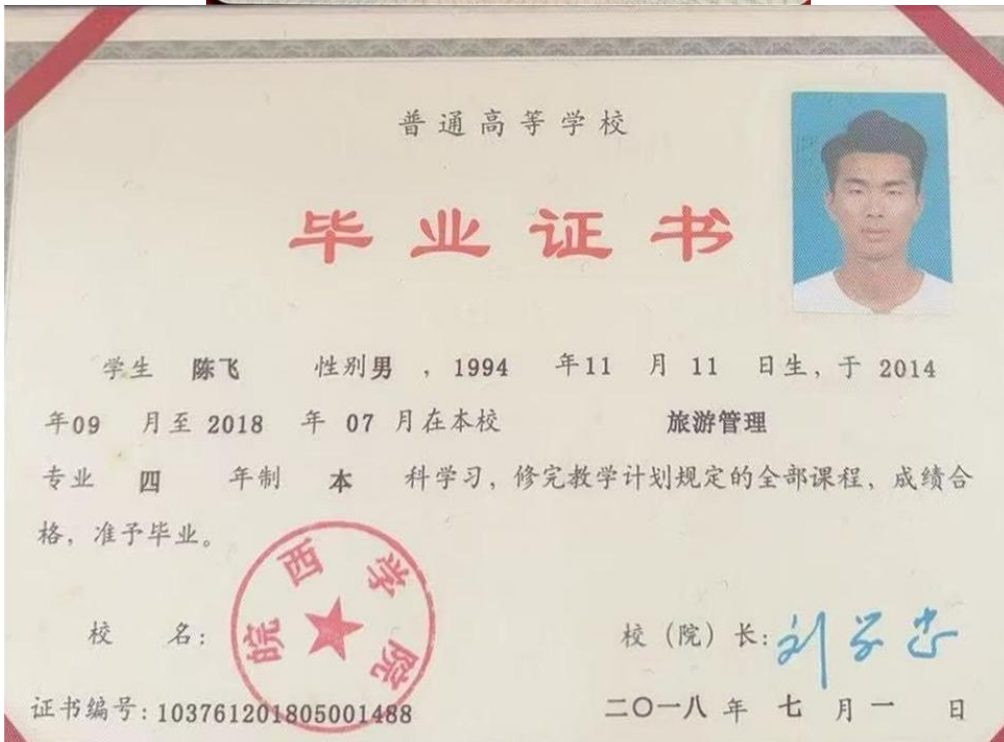 普通高等学校
毕业证书
学生 陈飞 性别男 , 1994 年11 月 11 日生, 于 2014
年09 月至 2018 年 07 月在本校 旅游管理
专业 四 年制 本 科学习, 修完教学计划规定的全部课程, 成绩合
格, 准予毕业。
皖西学院
校 名: 校 (院) 长: 刘学忠
证书编号: 103761201805001488 二〇一八 年 七 月 一 日